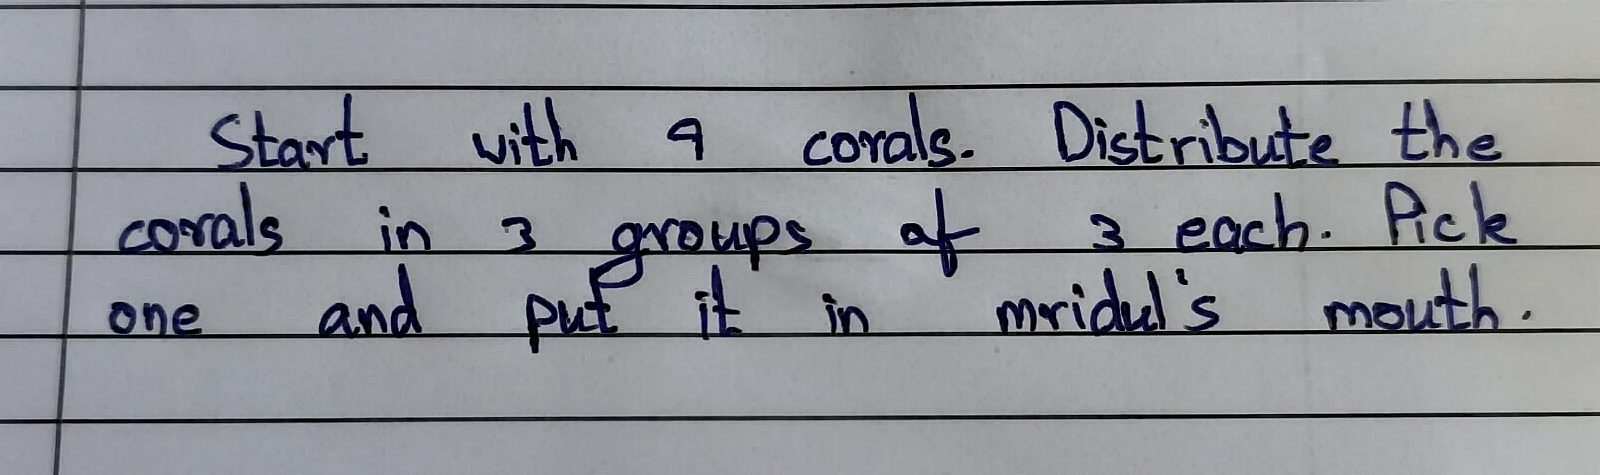 Start with 9 corals. Distribute the
corals in 3 groups of 3 each. Pick
one and put it in mridul's mouth.